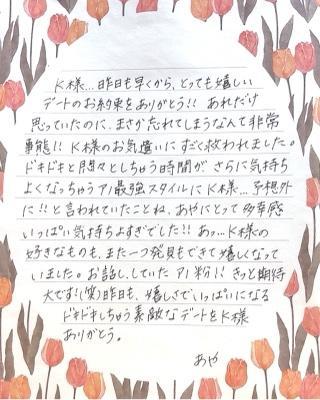 K様...昨日も早くから、とっても嬉しい
デートのお約束をありがとう!! あれだけ
思っていたのに、まさか忘れてしまうなんて非常
事態!! K様のお気遣いにずっと救われました。
ドキドキと悶々としちゃう時間が、さらに気持ち
よくなっちゃうアノ最強スタイルにK様...予想外
に!!と言われていたことね、あやにとって多幸感
いっぱい気持ちよすぎでした!! あっ...K様の
好きなものも、また一つ発見もできて嬉しくなって
いました。お話ししていたアノ粉!! きっと期待
大です!(笑)昨日も、嬉しさでいっぱいになる
ドキドキしちゃう素敵なデートをK様
ありがとう。
あや